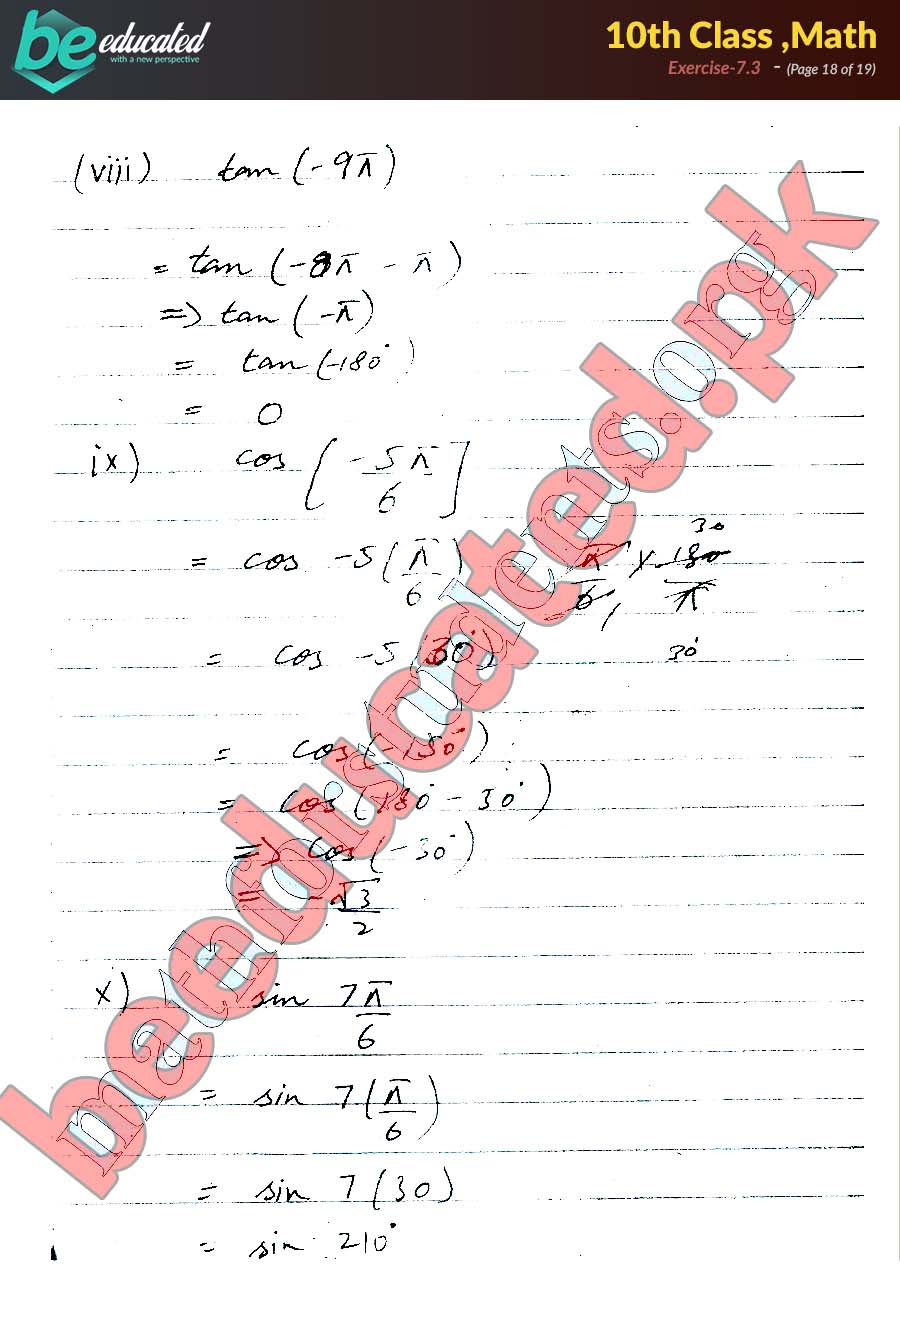 be educated
with a new perspective
10th Class ,Math
Exercise-7.3 - (Page 18 of 19)
(viii) tan (-9π)
= tan (-8π - π)
=> tan (-π)
= tan (-180°)
= 0
ix) cos [-5π/6]
= cos -5(π/6) π/6 × 180/π 30
= cos -5(30°) 30°
= cos(-150°)
= cos(180° - 30°)
=> cos(-30°)
= -√3/2
x) sin 7π/6
= sin 7(π/6)
= sin 7(30)
= sin 210°
beeducated.pk